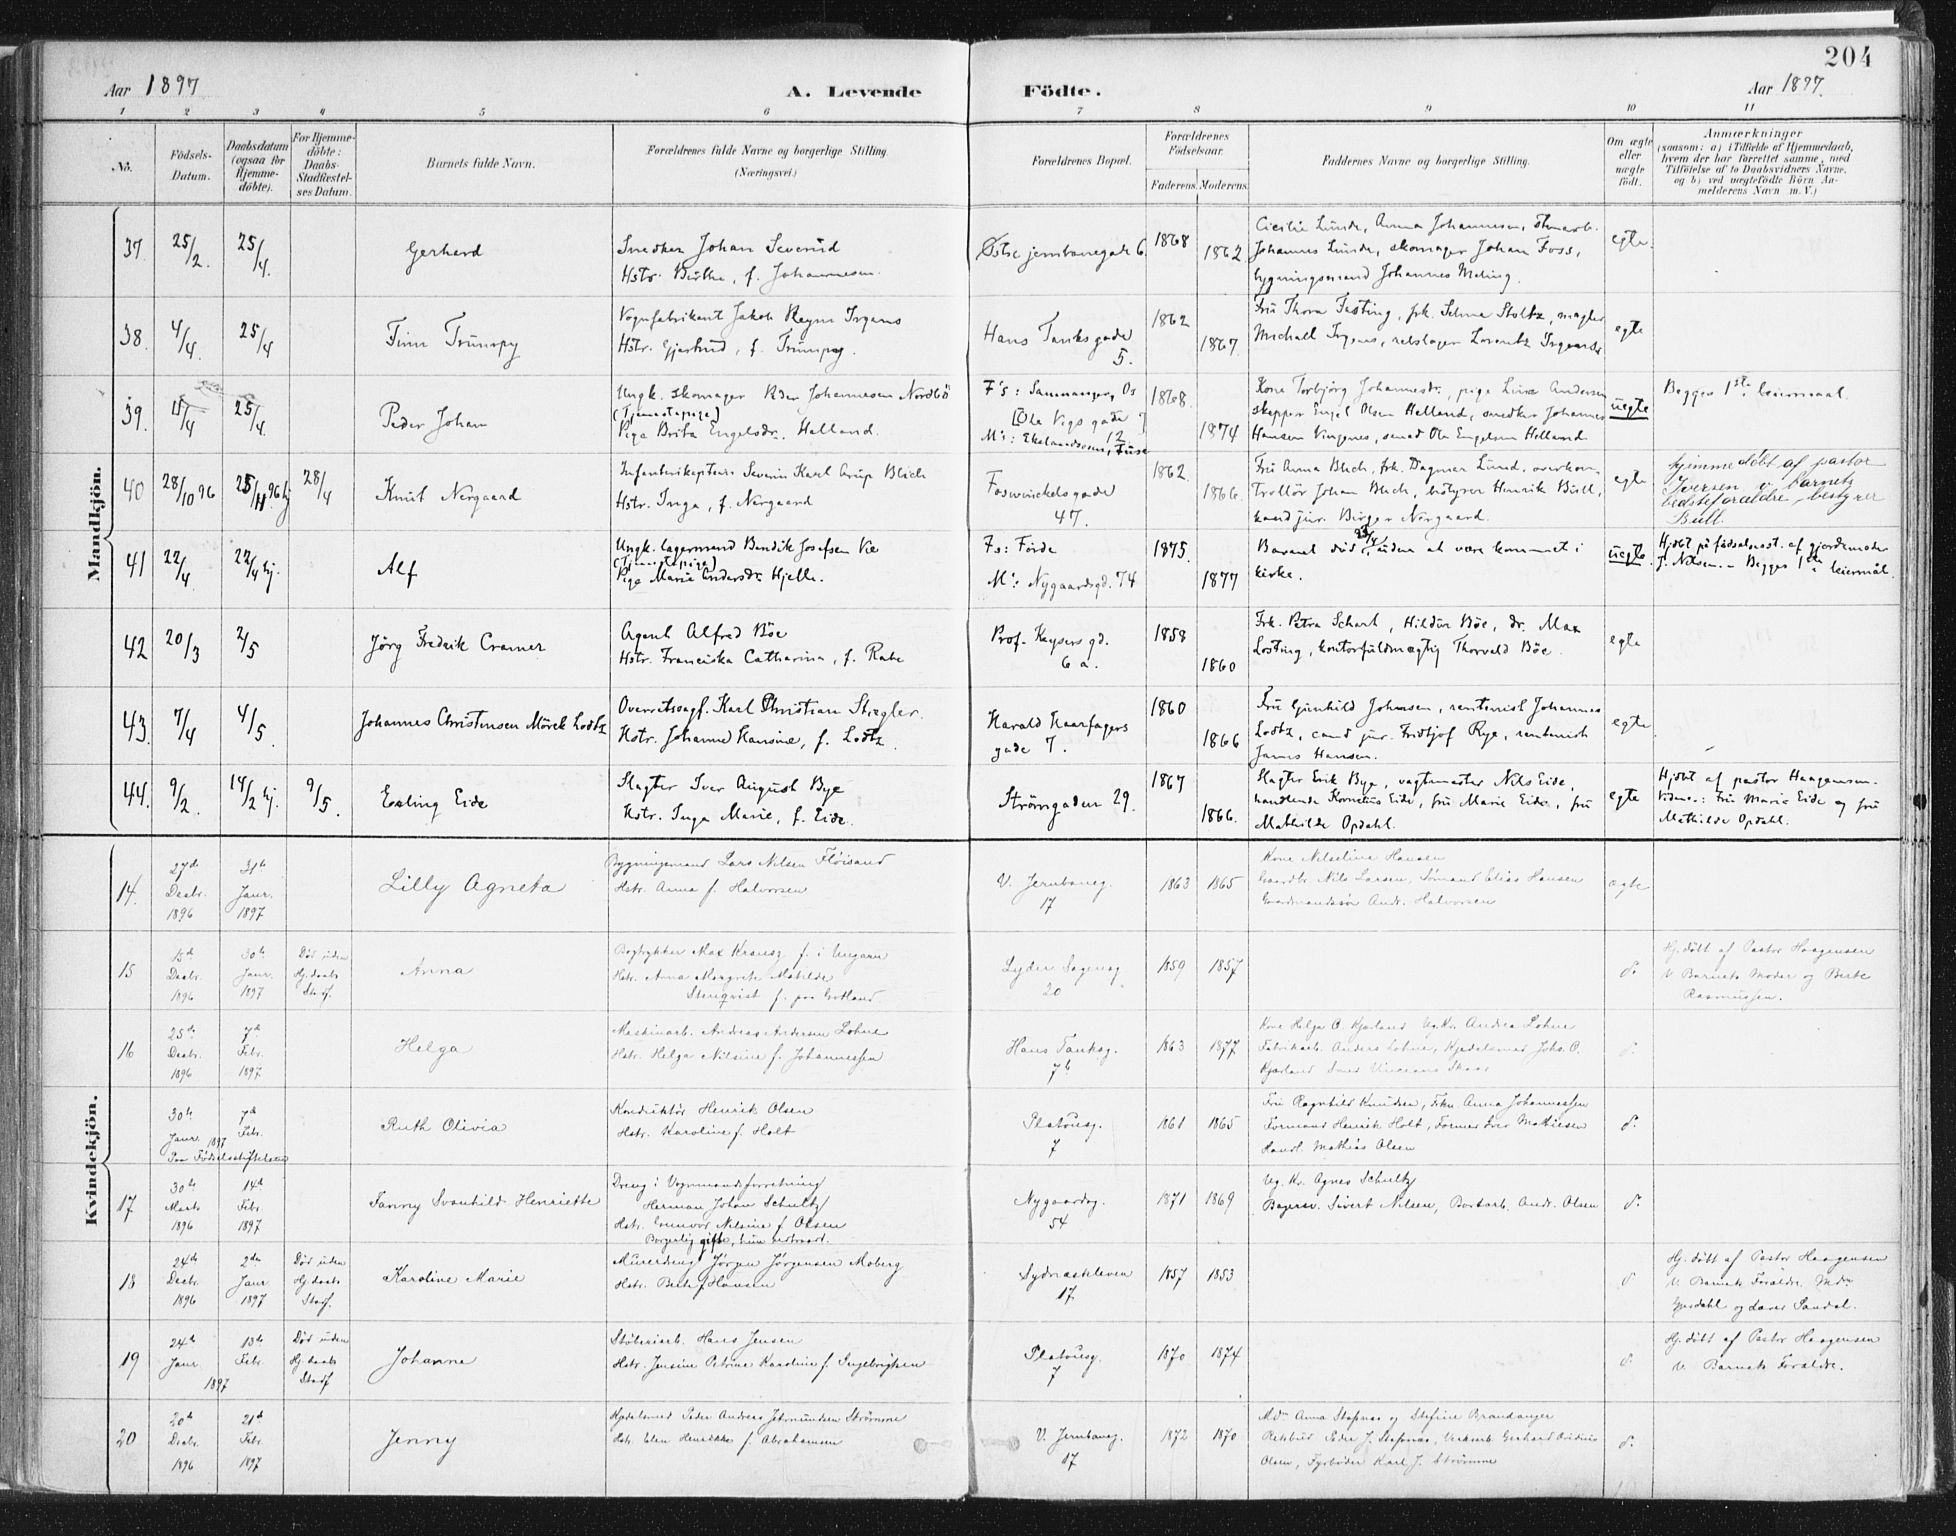 204
Aar 1897
A. Levende Födte.
Aar 1897.
1 2 3 4 5 6 7 8 9 10 11
No.
Födsels-
Datum.
Daabsdatum
(ogsaa för
Hjemme-
döbte).
For Hjemme-
döbte:
Daabs-
Stadfæstel-
ses Datum.
Barnets fulde Navn.
Forældrenes fulde Navne og borgerlige Stilling
(Næringsvei.)
Forældrenes Bopæl.
Forældrenes
Födselsaar.
Faderens. Moderens.
Faddernes Navne og borgerlige Stilling.
Om ægte
eller
uægte
födt.
Anmærkninger
(saasom: a) i Tilfælde af Hjemmedaab,
hvem der har forrettet samme, med
Tilföielse af to Daabsvidners Navne,
og b) ved uægtefödte Börn An-
melderens Navn m. V.)
Mandkjön.
37. 25/2. 25/4. Gerhard
Snedker Johan Severud
Hstr. Birthe, f. Johannesen.
Østre jernbanegade 6. 1868 1862
Cicilie Lunde, Anna Johannesen,
Johannes Lunde, skomager Johan Foss,
bygningsmand Johannes Meling.
egte.
38. 4/4. 25/4 Finn Trumpy
Vognfabrikant Jakob Irgens
Hstr. Gjertrud, f. Trumpy.
Hans Tanksgade
5.
1862 1867.
Fru Thora Fasting, frk. Selma Stoltz, mægler
Michael Irgens, rebslager Lorentz Irgens
egte
39. 11/4 25/4. Peder Johan
Ungk. skomager Peder Johannesen Nordbö
(Tjenestepige)
Pige Brita Engelsdr. Helland.
F's: Samnanger, Os
[Ole Vigs gade
12]
M's: Ekelandsosen, Fuse
1868. 1874
Kone Torbjörg Johannesdr., pige Lina Andersen
skipper Engel Olsen Helland, smedker Johannes
Hansen Vingenes, Ole Engelsen Helland
uegte
Begges 1ste leiermaal.
40 28/10 96 25/11 96 hj 28/4 Knut Nergaard
Infanterikaptein Severin Karl Arup Blich
Hstr. Inga, f. Nergaard
Foswinckelsgade
47.
1862. 1866.
Fru Anna Blich, frk. Dagmar Lund, overkon-
trollör Johan Blich, bestyrer Henrik Bull,
kand jur. Birger Nergaard.
egte
hjemmedöbt af pastor
Iversen v. barnets
bedsteforældre, bestyrer
Bull.
41 22/4 22/4 hj. Alf
Ungk. lagermand Bendik Josefsen Vie
(Tjenestepige)
Pige Marie Andersdr. Hjelle.
Fs: Förde
M's: Nygaardsgd. 74
1875. 1877
Barnet död 23/4, uden at være kommet i
kirke.
uegte.
Hjdöbt på födselsanst. af gjordemoder
J. Nilsen. – Begges 1ste leiermål.
42 20/3 2/5 Jørg Fredrik Cramer
Agent Alfred Böe
Hstr. Franciska Catharina, f. Rabe
Prof. Keysers gd.
6 a.
1858 1860
Frk. Petra Schart, Hildur Böe, dr. Max
Losting, kontorfuldmægtig Thorvald Böe.
egte
43. 7/4 4/5. Johannes Christensen Mörck Lodtz
Overretssagf. Karl Christian Stiegler.
Hstr. Johanne Hansine, f. Lodtz.
Harald Haarfagers
gade 7.
1860 1866
Fru Gunhild Johnsen, rentenist Johannes
Lodtz, cand jur. Fridtjof Rye, rentenist
James Hansen.
egte
44. 9/2. 14/2 hj. 9/5. Erling Eide
Slagter Iver August Bye
Hstr. Inga Marie, f. Eide.
Strömgaden 29. 1867 1866.
Slagter Erik Bye, vagtmester Nils Eide,
handlende Kornelius Eide, fru Marie Eide, fru
Mathilde Opdahl.
egte
Hjdöbt af pastor Haagensen.
Vidner: Fru Marie Eide og fru
Mathilde Opdahl.
Kvindekjön.
14. 27de Decbr. 1896 31te Janr. 1897 Lilly Agneta
Bygningsmand Lars Nilsen Flöisand
Hstr. Anna f. Halvorsen
V. Jernbaneg.
17
1863 1865
Kone Nilseline Hansen
Gaardbr. Nils Larsen, Sömand Elias Hansen
Gaardmandssön Andr. Halvorsen
ægte
15 15de Decbr. 1896 30te Janr. 1897 Död uden Hj.daabs Stadf. Anna
Bogtrykker Max Krausz f. i Ungarn
Hstr. Anna Margrete Matilde
Stenqvist f. paa Gotland
Lyder Sagensg
20
1859 1857
d.
Hj. döbt af Pastor Haagensen
V. Barnets Moder og Berte
Rasmussen.
16 25de Decbr. 1896 7de Febr. 1897. Helga
Maskinarb. Andreas Andersen Lohne
Hstr. Helga Nilsine f. Johannessen
Hans Tanksg.
7b
1863 1877
Kone Helga O. Kjærland Ug.Kv. Andrea Lohne
Fabrikarb. Anders Lohne, Kjedelsmed Johs. O.
Kjærland Smed
d.
30te Janr. 1897 7de Febr.
Paa Födselsstiftelsen
Ruth Olivia
Konduktör Henrik Olsen
Hstr. Karoline f. Holt
Platöusg.
7
1861 1865
Fru Ragnhild Knudsen, Frkn. Anna Johannessen
Formand Henrik Holt, Former Iver Mathiesen
Handl. Mathias Olsen
d.
17 30te Marts 1896 14de Febr. 1897 Fanny Svanhild Henriette
Dreng i Vognmandsforretning
Herman Johan Schultz
Hstr. Gunvor Nilsine f. Olsen
Borgerlig gifte,
Nygaardsg.
54
1871 1869
Ug. Kv. Agnes Schultz
Bagersv. Sivert Nilsen, Andr. Olsen
d.
18 24de Decbr. 1896 2den Janr 1897 Död uden Hj.daabs Stadf. Karoline Marie
Murerdreng Jörgen Jörgensen Moberg
Hstr. Berte f. Hansen
Sydnæskleven
17.
1857 1853
d
Hj. döbt af Pastor Haagensen
V. Barnets Forældre, Mdm
og Lars Sandal.
19 24de Janr 1897 13de Febr. Död uden Hj.daabs Stadf Johanne
Stöberiarb. Hans Jensen
Hstr. Jensine Petrine Karoline f. Ingebrigtsen
Platöusg.
7
1870 1874
d.
Hj. döbt af Pastor Haagensen
V. Barnets Forældre.
20 20de Decbr. 1896 21de Febr. 1897 Jenny
Kjedelsmed Peder Andreas Strömme
Hstr. Elen Henrikke f. Abrahamsen
V. Jernbaneg.
17
1872 1870
Mdm Anna Stafsnæs og Stefine Brandanger
Peder J. Stafsnæs, Gerhard
Olsen, Fyrböder Karl J. Strömme
d.